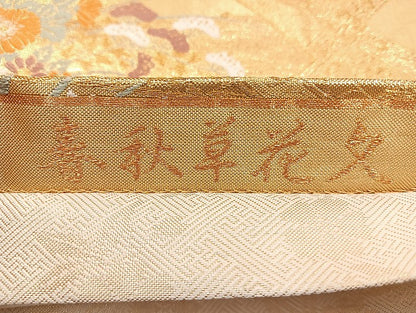 秋草花文